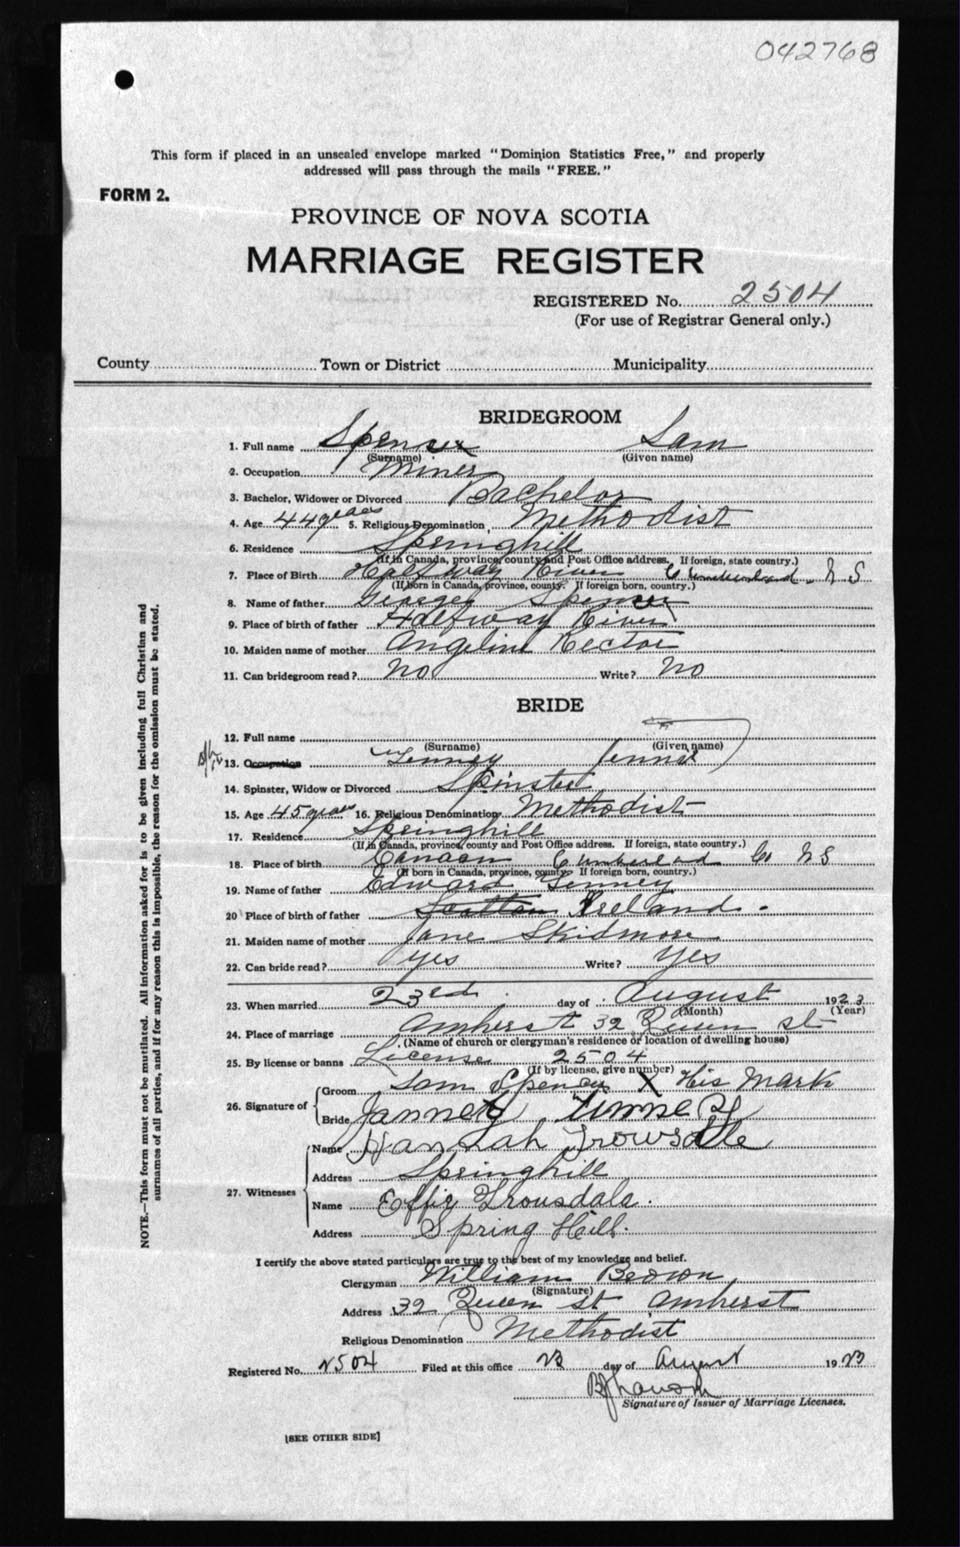 042768
This form if placed in an unsealed envelope marked "Dominion Statistics Free," and properly
addressed will pass through the mails "FREE."
FORM 2.
PROVINCE OF NOVA SCOTIA
MARRIAGE REGISTER
REGISTERED No. 2504
(For use of Registrar General only.)
County Town or District Municipality
BRIDEGROOM
1. Full name Spencer Sam
(Surname) (Given name)
2. Occupation Miner
3. Bachelor, Widower or Divorced Bachelor
4. Age 44 years 5. Religious Denomination Methodist
6. Residence Springhill
(If in Canada, province, county and Post Office address. If foreign, state country.)
7. Place of Birth Halfway River Cumberland N S
(If born in Canada, province, county. If foreign born, country.)
8. Name of father George Spencer
9. Place of birth of father Halfway River
10. Maiden name of mother Angeline Rector
11. Can bridegroom read? No Write? No
BRIDE
12. Full name
(Surname) (Given name)
13. Occupation Tenney
14. Spinster, Widow or Divorced Spinster
15. Age 45 years 16. Religious Denomination Methodist
17. Residence Springhill
(If in Canada, province, county and Post Office address. If foreign, state country.)
18. Place of birth Canaan Cumberland Co N S
(If born in Canada, province, county. If foreign born, country.)
19. Name of father Edward Tenney
20 Place of birth of father Ireland.
21. Maiden name of mother Jane Skidmore
22. Can bride read? yes Write? yes
23. When married 23rd day of August 1923
(Month) (Year)
24. Place of marriage Amherst 32 Queen St
(Name of church or clergyman's residence or location of dwelling house)
25. By license or banns License 2504
(If by license, give number)
26. Signature of Groom Sam Spencer X His Mark
Bride Jannet Tinney
27. Witnesses Name Hannah Trowsdle
Address Springhill
Name Effie Trousdale.
Address Spring Hill.
I certify the above stated particulars are true to the best of my knowledge and belief.
Clergyman William Brown
(Signature)
Address 32 Queen St Amherst
Religious Denomination Methodist
Registered No. 2504 Filed at this office 23 day of August 1923
Signature of Issuer of Marriage Licenses.
[SEE OTHER SIDE]
NOTE.—This form must not be mutilated. All information asked for is to be given including full Christian and
surnames of all parties, and if for any reason this is impossible, the reason for the omission must be stated.